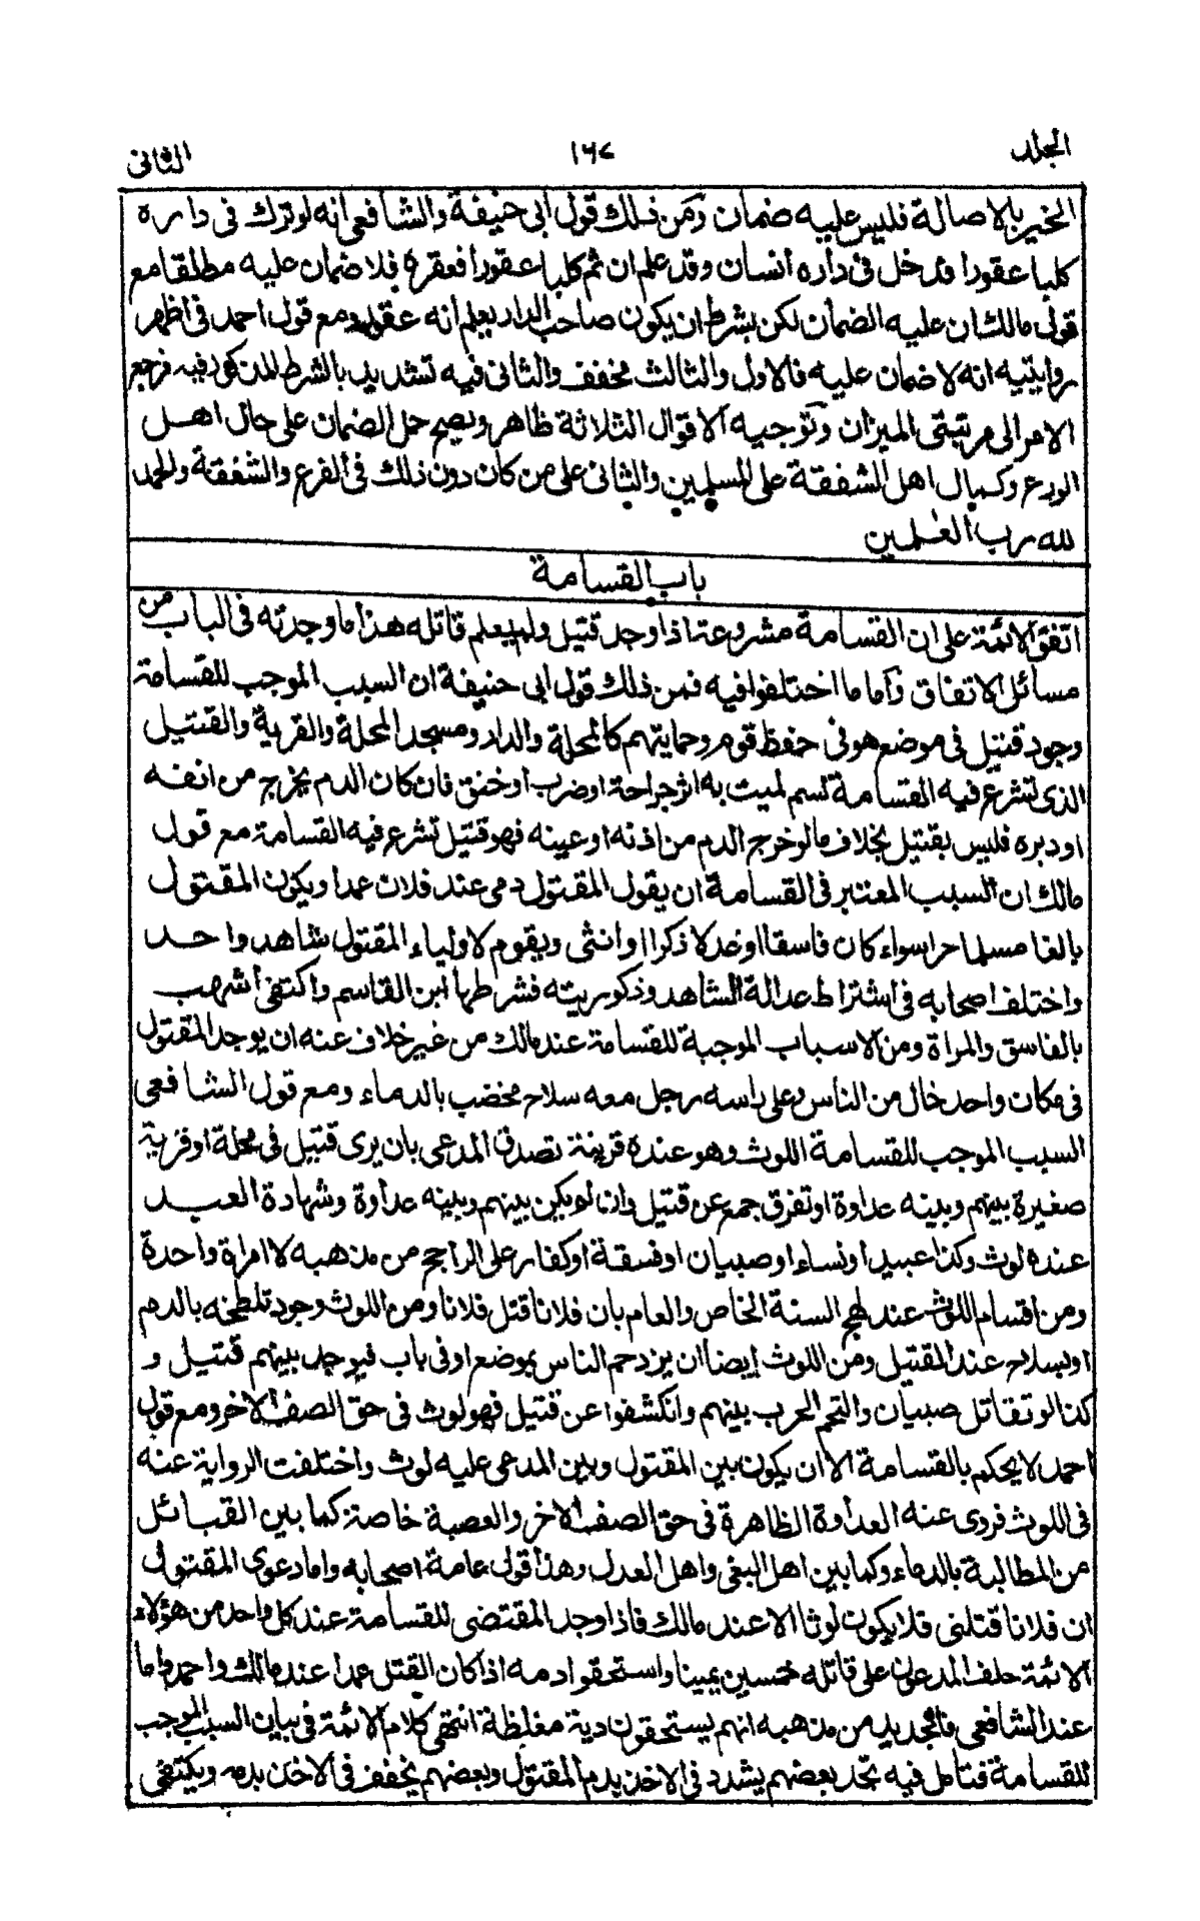 المجلد
١٦٧
الثانى
الخير بالاصالة فليس عليه ضمان ومن ذلك قول ابى حنيفة والشافعى انه لو ترك فى داره
كلبا عقورا فدخل فى داره انسان وقد علم ان ثم كلبا عقورا فعقره فلا ضمان عليه مطلقا مع
قول مالك ان عليه الضمان لكن بشرط ان يكون صاحب الدار يعلم انه عقور ومع قول احمد فى اظهر
روايتيه انه لا ضمان عليه فالاول والثالث مخفف والثانى فيه تشديد بالشرط المذكور فيه فرجع
الامر الى مرتبتى الميزان وتوجيه الاقوال الثلاثة ظاهر ويصح حمل الضمان على حال اهل
الورع وكمال اهل الشفقة على المسلمين والثانى على من كان دون ذلك فى الفرع والشفقة والحمد
لله رب العلمين
باب القسامة
اتفق الائمة على ان القسامة مشروعة اذا وجد قتيل ولم يعلم قاتله هذا ما وجدته فى الباب من
مسائل الاتفاق واما ما اختلفوا فيه فمن ذلك قول ابى حنيفة ان السبب الموجب للقسامة
وجود قتيل فى موضع هو فى حفظ قوم وحمايتهم كالمحلة والدار ومسجد المحلة والقرية والقتيل
الذى تشرع فيه القسامة اسم لميت به اثر جراحة او ضرب او خنق فان كان الدم يخرج من انفه
او دبره فليس بقتيل بخلاف ما لو خرج الدم من اذنه او عينه فهو قتيل تشرع فيه القسامة مع قول
مالك ان السبب المعتبر فى القسامة ان يقول المقتول دمى عند فلان عمدا ويكون المقتول
بالغا مسلما حرا سواء كان فاسقا او عدلا ذكرا او انثى ويقوم لاولياء المقتول شاهد واحد
واختلف اصحابه فى اشتراط عدالة الشاهد وذكوريته فشرطها ابن القاسم واكتفى اشهب
بالفاسق والمراة ومن الاسباب الموجبة للقسامة عند مالك من غير خلاف عنه ان يوجد المقتول
فى مكان واحد خال من الناس وعلى راسه رجل معه سلاح مخضب بالدماء ومع قول الشافعى
السبب الموجب للقسامة اللوث وهو عنده قرينة تصدق المدعى بان يرى قتيل فى محلة او قرية
صغيرة بينهم وبينه عداوة او تفرق جمع عن قتيل وان لم يكن بينهم وبينه عداوة وشهادة العبد
عنده لوث وكذا عبيد او نساء او صبيان او فسقة او كفار على الراجح من مذهبه لا امراة واحدة
ومن اقسام اللوث عند لهج السنة الخاص والعام بان فلانا قتل فلانا ومن اللوث وجود تلطخه بالدم
او بسلاح عند المقتيل ومن اللوث ايضا ان يزدحم الناس بموضع او فى باب فيوجد بينهم قتيل و
كذا لو تقاتل صبيان والتحم الحرب بينهم وانكشفوا عن قتيل فهو لوث فى حق الصف الاخر ومع قول
احمد لا يحكم بالقسامة الا ان يكون بين المقتول وبين المدعى عليه لوث واختلفت الرواية عنه
فى اللوث فروى عنه العداوة الظاهرة فى حق الصف الاخر والعصبة خاصة كما بين القبائل
من المطالبة بالدماء وكما بين اهل البغى واهل العدل وهذا قول عامة اصحابه واما دعوى المقتول
ان فلانا قتلنى فلا يكون لوثا الا عند مالك فاذا وجد المقتضى للقسامة عند كل واحد من هؤلاء
الائمة حلف المدعون على قاتله خمسين يمينا واستحقوا دمه اذا كان القتل عمدا عند مالك واحمد واما
عند الشافعى فالجديد من مذهبه انهم يستحقون دية مغلظة انتهى كلام الائمة فى بيان السبب الموجب
للقسامة فتامل فيه تجد بعضهم يشدد فى الاخذ بدم المقتول وبعضهم يخفف فى الاخذ بدمه ويكتفى